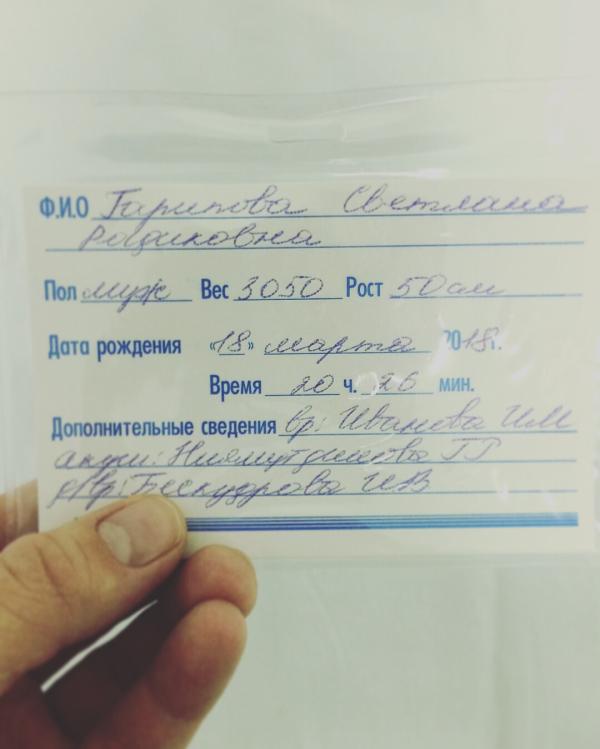 Ф.И.О Гарипова Светлана
Радиковна
Пол муж Вес 3050 Рост 50 см
Дата рождения «18» марта 2018г.
Время 20 ч. 26 мин.
Дополнительные сведения вр: Иванова И М
акуш: Г Г
д/вр: Бескудрова И В